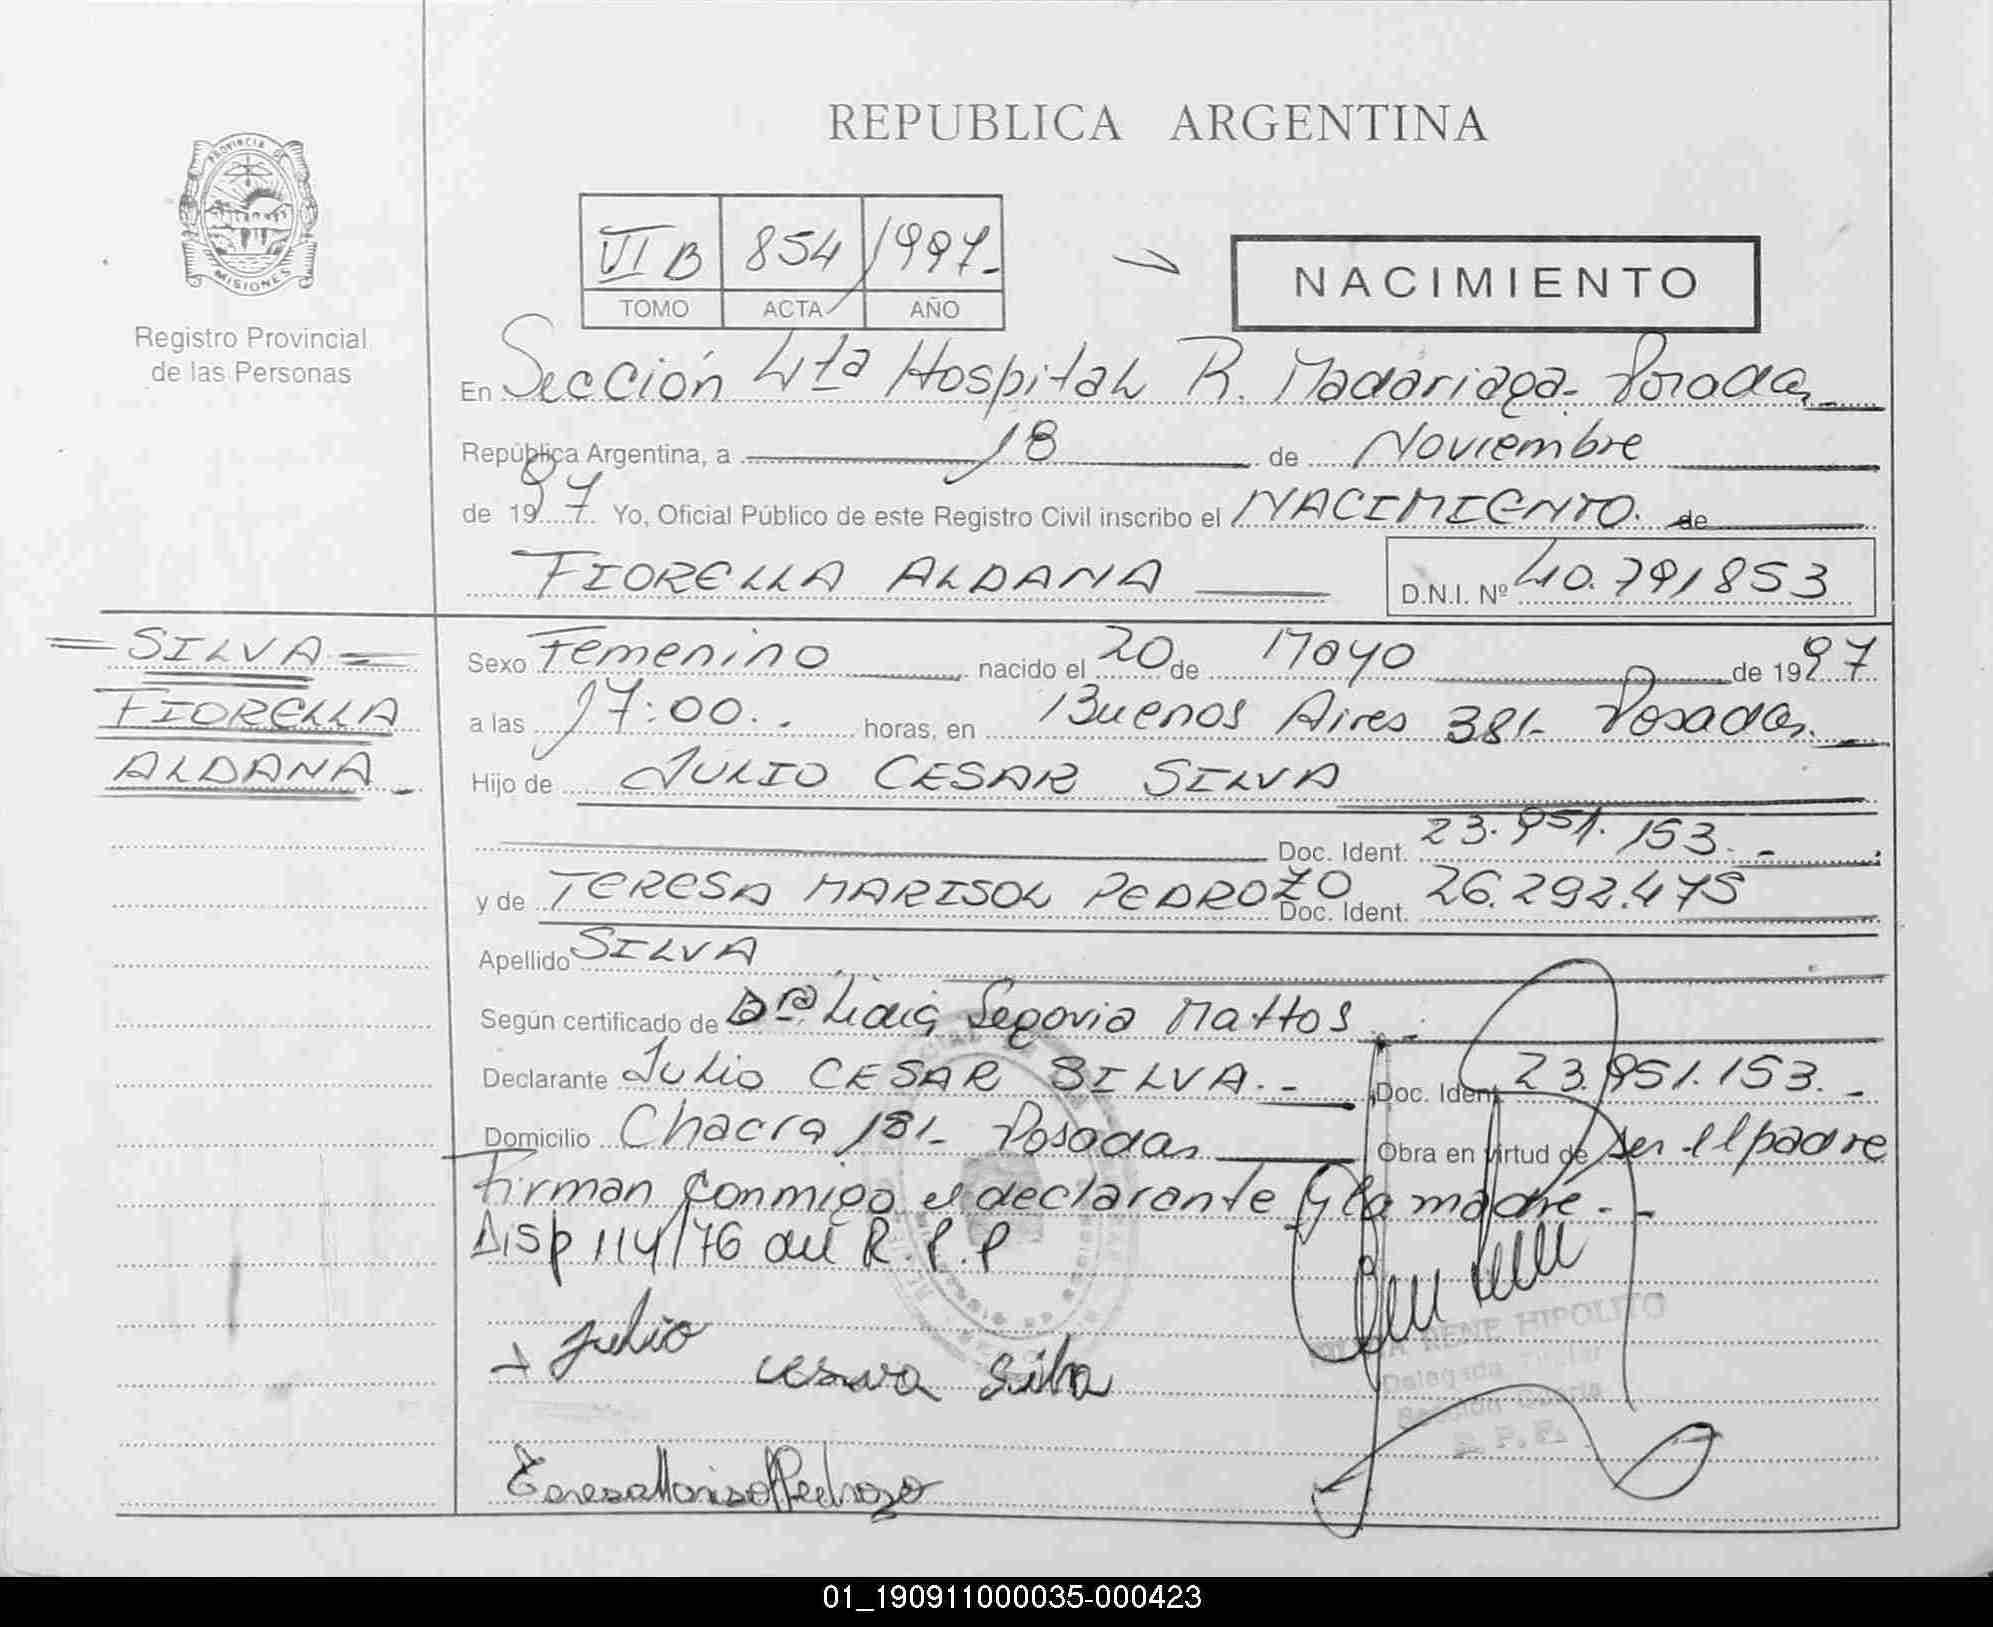 REPUBLICA ARGENTINA
PROVINCIA DE
MISIONES
Registro Provincial
de las Personas
VI B 854 1997-
TOMO ACTA AÑO
NACIMIENTO
En Sección 4ta Hospital R. Madariaga- Posadas
República Argentina, a 18 de Noviembre
de 1997 Yo, Oficial Público de este Registro Civil inscribo el NACIMIENTO. de
FIORELLA ALDANA D.N.I. Nº 40.791853
= SILVA =
FIORELLA
ALDANA -
Sexo Femenino nacido el 20 de Mayo de 1997
a las 17:00.- horas, en Buenos Aires 381- Posadas.
Hijo de JULIO CESAR SILVA
Doc. Ident. 23.951.153.-
y de TERESA MARISOL PEDROZO Doc. Ident. 26.292.475
Apellido SILVA
Según certificado de Segovia Mattos.-
Declarante Julio CESAR SILVA.- Doc. Ident. 23.951.153.-
Domicilio Chacra 181- Posadas Obra en virtud de ser el padre
Firman conmigo el declarante y la madre.-
Disp 114/76 del R.P.P
Julio
Silva
Teresa Marisol Pedrozo
RENE HIPOLITO
Delegada Titular
Sección Cuarta
R.P.P.
01_190911000035-000423